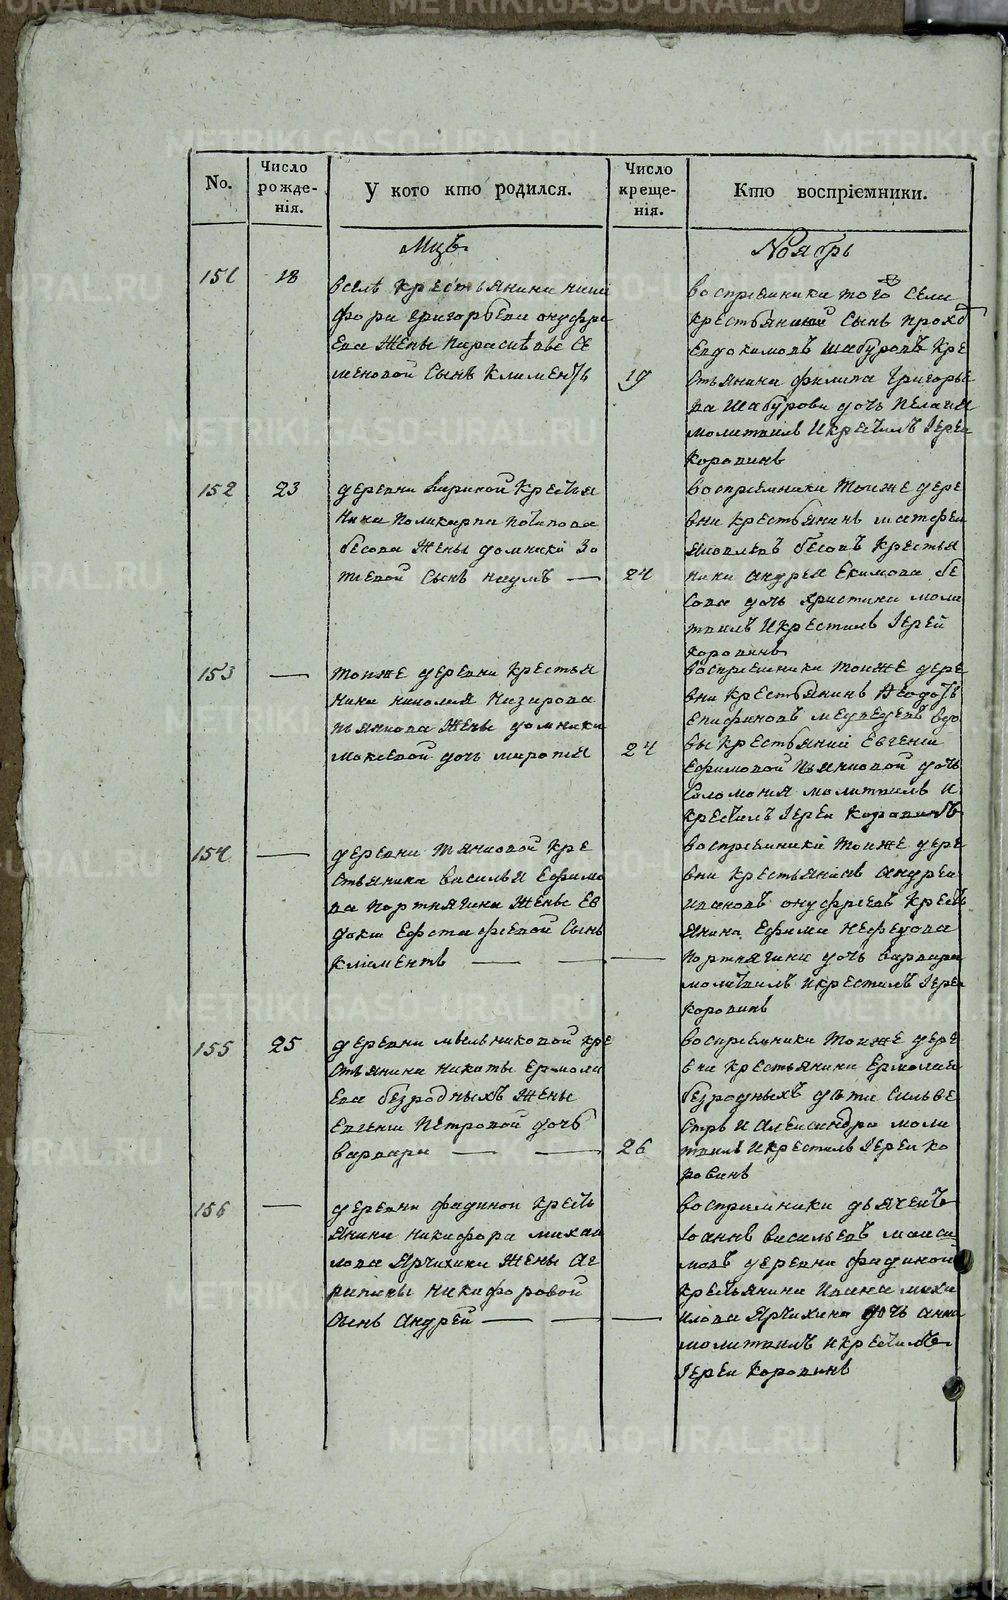 No.
Число рожде-нія.
У кого кто родился.
Число креще-нія.
Кто воспріемники.
Мцъ
Ноябрь
151
18
вселѣ крестьянина ники
фора григорьева онуфри
ева жены параскѣвье се
меновой сынъ климентъ
19
воспреемники того села
крестьянинъ сынъ прохо
евдокимовъ шабуровъ кре
стьянина филипа григорье
ва шабурова дочь пелагия
молитвилъ и крестилъ Іереи
коровинъ
152
23
деревни крестья
нина поликарпа потапова
бесова жены домники зо
тиевой сынъ наумъ
24
воспреемники тоиже дере
вни крестьянинъ матфеи
яковлевъ бесовъ крестья
нина андрея екимова бе
сова дочь христина моли
твилъ и крестилъ Іерей
коровинъ
153
тоиже деревни крестья
нина николая назарова
пьянкова жены домники
мокеевой дочь миропия
24
воспреемники тоиже дере
вни крестьянинъ Феодотъ
епифановъ медведевъ вдо
вы крестьяниі Евгении
Ефимовой пьянковой дочь
Соломония молитвилъ и
крестилъ Іереи коровинъ
154
деревни тянковой кре
стьянина василья Ефимо
ва портнягина жены Ев
докиі Ефстафеевой сынъ
климентъ
воспреемники тоиже дере
вни крестьянинъ андреи
ивановъ онуфреевъ кресть
янина Ефима нефедова
портнягина дочь варвара
молитвилъ и крестилъ Іереи
коровинъ
155
25
деревни мельниковой кре
стьянина никиты Ермола
ева безродныхъ жены
Евгениі петровой дочь
варвара
26
воспреемники тоиже дере
вни крестьянина Ермолая
безродныхъ дѣти сильве
стръ и александра моли
твилъ и крестилъ Іереи ко
ровинъ
156
деревни фадинои кресть
янина никифора михаи
лова ярчихина жены аг
рипины никифоровой
сынъ андрей
воспреемники дьячекъ
Іоаннъ васильевъ макси
мовъ деревни фадиной
крестьянина ивана миха
илова ярчихина дочь анна
молитвилъ и крестилъ
Іереи коровинъ
METRIKI.GASO-URAL.RU